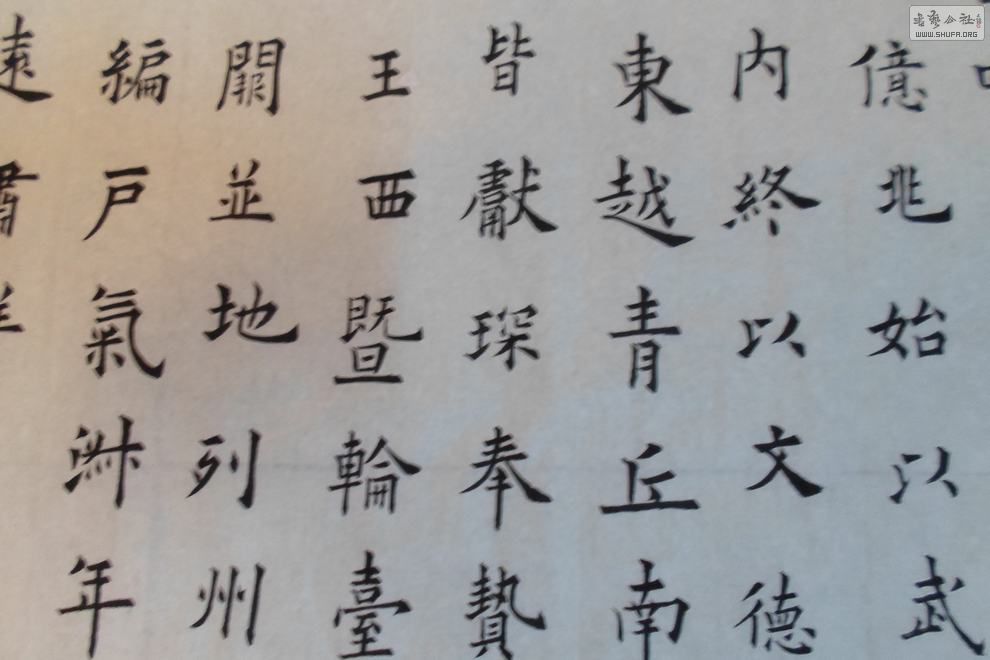 億兆始以武
内終以文德
東越青丘南
皆獻琛奉贄
王西暨輪臺
闕並地列州
編戶氣淑年
遠肅
書藝公社
WWW.SHUFA.ORG